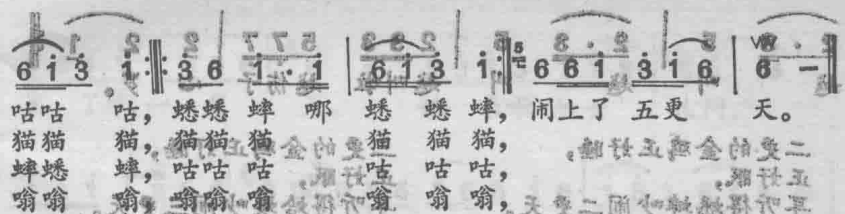 6 1 3 1 :‖: 3 6 1 · 1 | 6 1 3 1 :‖ 6 6 1 3 1 6 | 6 —
咕咕 咕, 蟋蟋 蟀 哪 蟋 蟋 蟀, 闹上了 五更 天。
猫猫 猫, 猫猫 猫 猫 猫 猫,
蟀蟋 蟀, 咕咕 咕 咕 咕 咕,
嗡嗡 嗡, 嗡嗡 嗡 嗡 嗡 嗡,